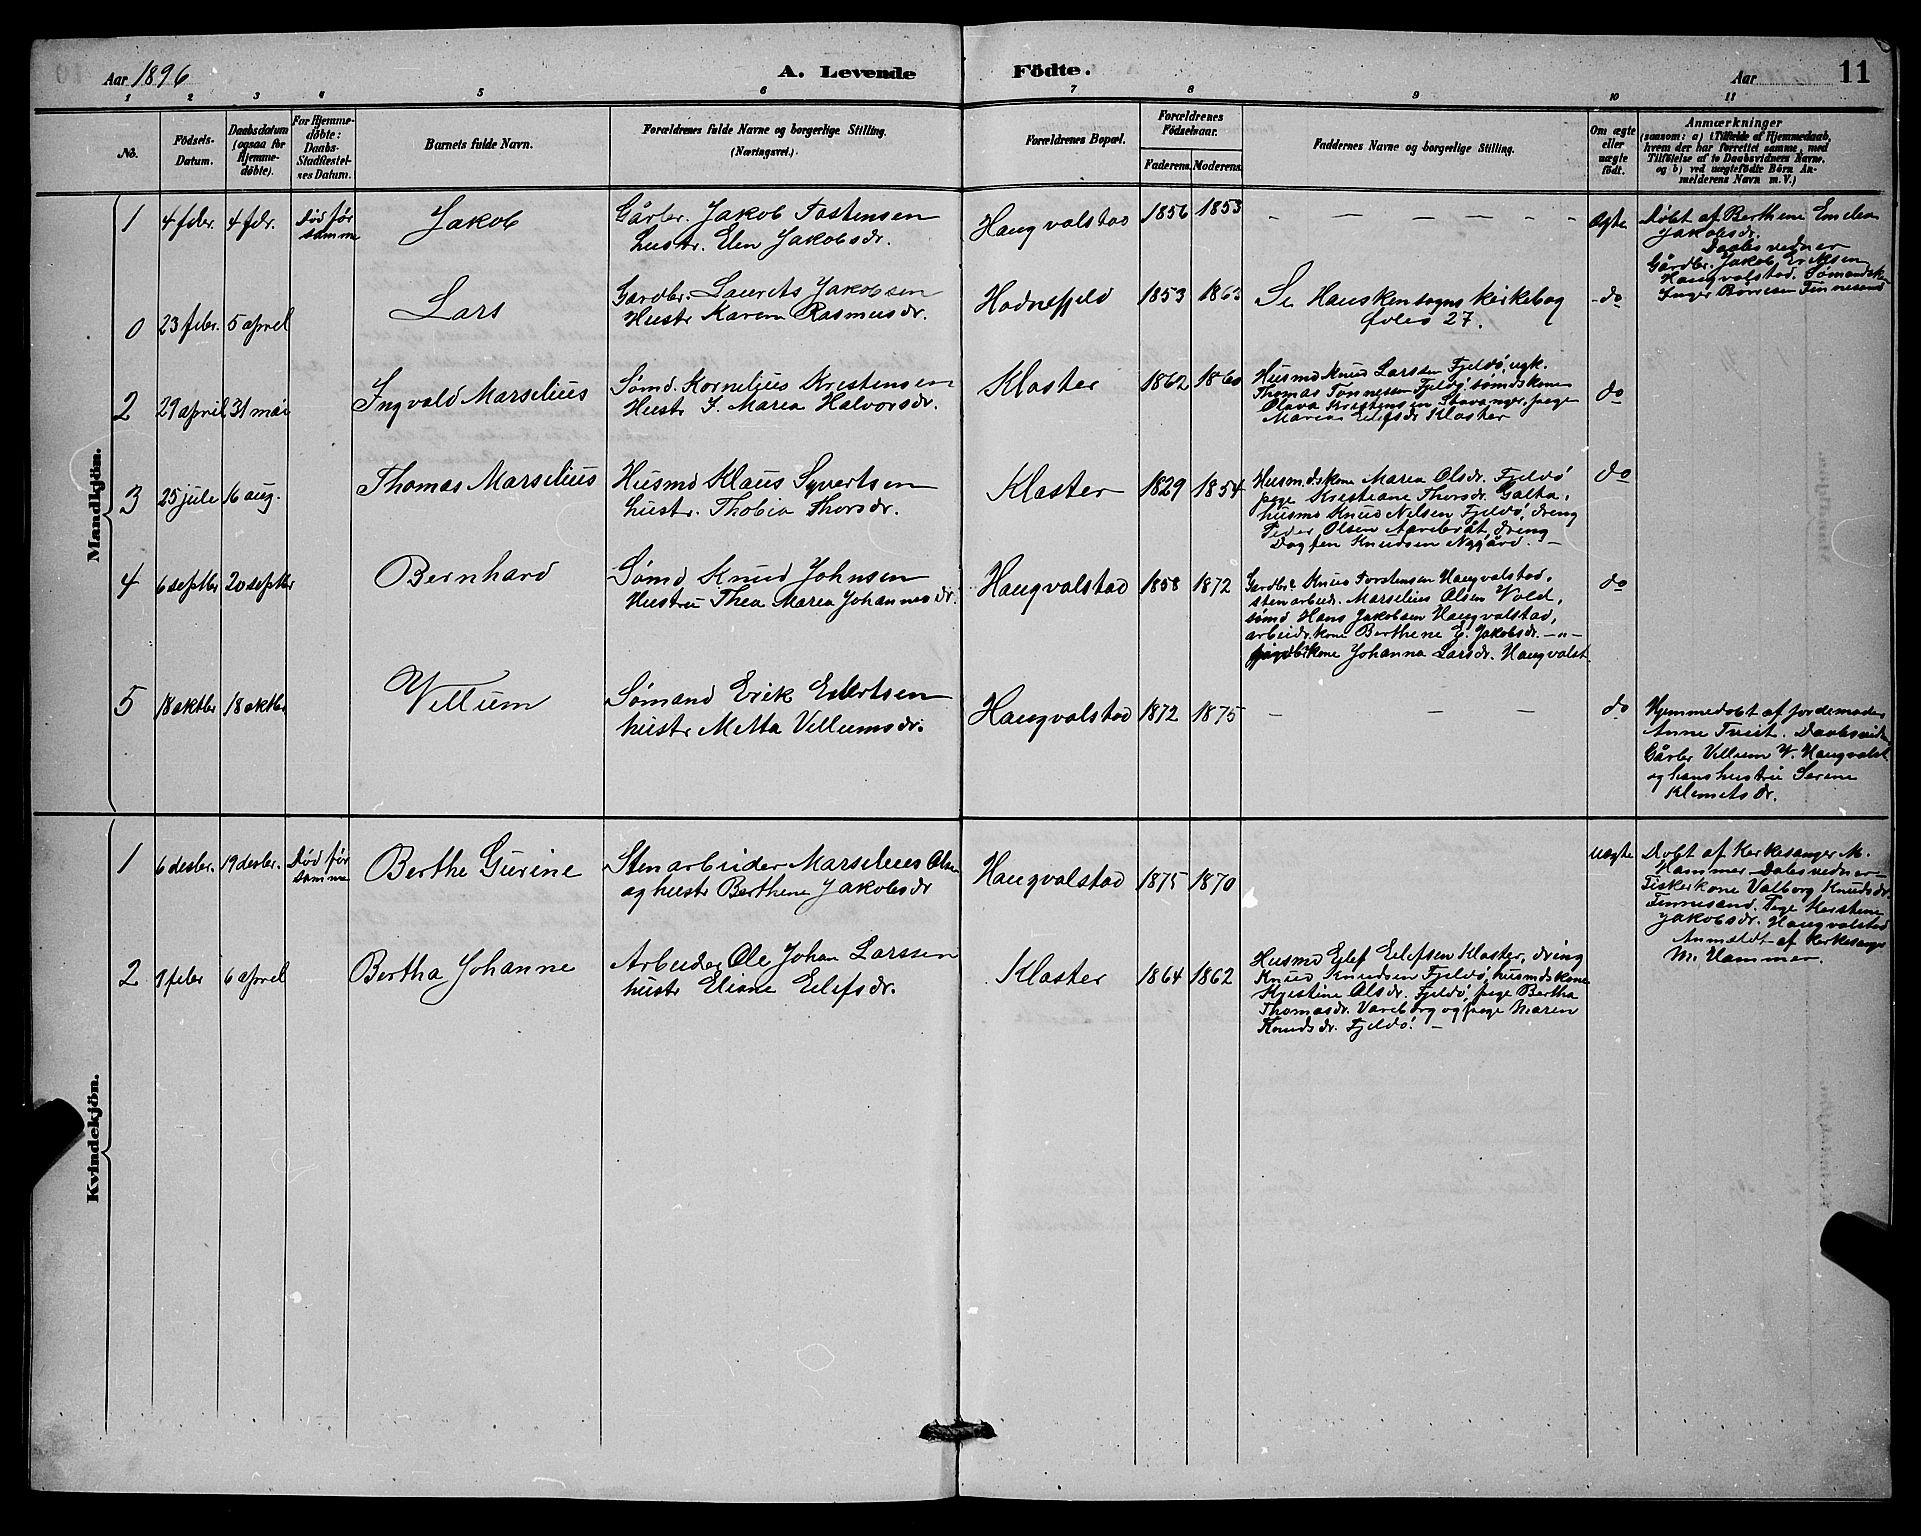 Aar 1896
A. Levende
Födte.
Aar
11
1 2 3 4 5 6 7 8 9 10 11
No.
Födsels-
Datum.
Daabsdatum
(ogsaa for
Hjemme-
døbte).
For Hjemme-
døbte:
Daabs-
Stadfæstel-
ses Datum.
Barnets fulde Navn.
Forældrenes fulde Navne og borgerlige Stilling.
(Næringsvei.)
Forældrenes Bopæl.
Forældrenes
Fødselsaar.
Faderens. Moderens.
Faddernes Navne og borgerlige Stilling.
Om ægte
eller
uægte
født.
Anmærkninger
(saasom: a) i Tilfælde af Hjemmedaab,
hvem der har forrettet samme, med
Tilföielse af to Daabsvidners Navne,
og b) ved uægtefödte Börn An-
melderens Navn m. V.)
Mandkjön.
1 4 febr. 4 febr. Død før
samme
Jakob
Gårbr. Jakob Tostensen
hustr. Elen Jakobsdr.
Haugvalstad 1856 1853
— — — — — — —
Ægte
Døbt af Berthene Emelea
Jakobsdr.
Daabsvedner
Gårdbr. Jakob Eriksen
Haugvalstad. Sømandsk
Inger Børresen Finnesand
0 23 febr. 5 aprel
Lars
Gardbr. Laurits Jakobsen
Hustr Karen Rasmusdr.
Hodnefjeld 1853 1863
Se Hauskensogns kirkebog
folio 27.
do
2 29 april 31 mai
Ingvald Marselius
Sømd. Kornelius Kristensen
Hustr I. Marea Halvorsdr.
Kloster 1862 1860
Husmd Knud Larssen Fjeldø, ugk.
Thomas Tønnessen Fjeldø. sømdskone
Olava Kristensen Stavanger, pige
Maren Eilefsdr Kloster
do
3 25 jule 16 aug.
Thomas Marselius
Husmd Klaus Syvertsen
hustr. Thobia Thorsdr.
Kloster 1829 1854
Husmdskone Marea Olsdr. Fjeldø
pige Kristiane Thorsdr. Galta,
husmd Knud Nilsen Fjeldø, dreng
Peder Olsen Aarebråt, dreng
Dagfen Knudsen Nygård. —
do
4 6 septbr 20 septbr
Bernhard
Sømd Knud Johnsen
Hustru Thea Marea Johannesdr.
Haugvalstad 1858 1872
Gardbr. Knud Torstensen Haugvalstad,
stenarbeid. Marselius Olsen Vold,
sømd Hans Jakobsen Haugvalstad,
arbeidr.kone Berthene E. Jakobsdr. — „ —
gårdbr.kone Johanna Larsdr. Haugvalst.
do
5 18 oktbr 18 oktbr
Villum
Sømand Erik Eilertsen
hustr Metta Villumsdr.
Haugvalstad 1872 1875
— — —
do
Hjemmedøbt af jordemoder
Anne Tveit. Daabsvidn
Gårbr Villum V. Haugvalst
og hans hustru Serine
Klemetsdr.
Kvindekjön.
1 6 desbr. 19 desbr. Død før
samme
Berthe Gurine
Stenarbeider Marselius Olsen
og hustr Berthene Jakobsdr
Haugvalstad 1875 1870
Uægte
Døbt af Kerkesanger M.
Hammer — Dabsvedner —
Fiskerkone Valborg Knudsdr
Finnesand. Pige Kerstene
Jakobsdr. Haugvalstad
Anmeldt af Kerkesanger
M. Hammer.
2 9 febr 6 aprel
Bertha Johanne
Arbeider Ole Johan Larssen
hustr Eliane Eilefsdr.
Kloster 1864 1862
Husmd Eilef Eilefsen Kloster, dring
Knud Knudsen Fjeldø, husmdskone
Kristine Olsdr. Fjeldø, pige Bertha
Thomasdr. Vareberg og pige Maren
Knudsdr. Fjeldø. —